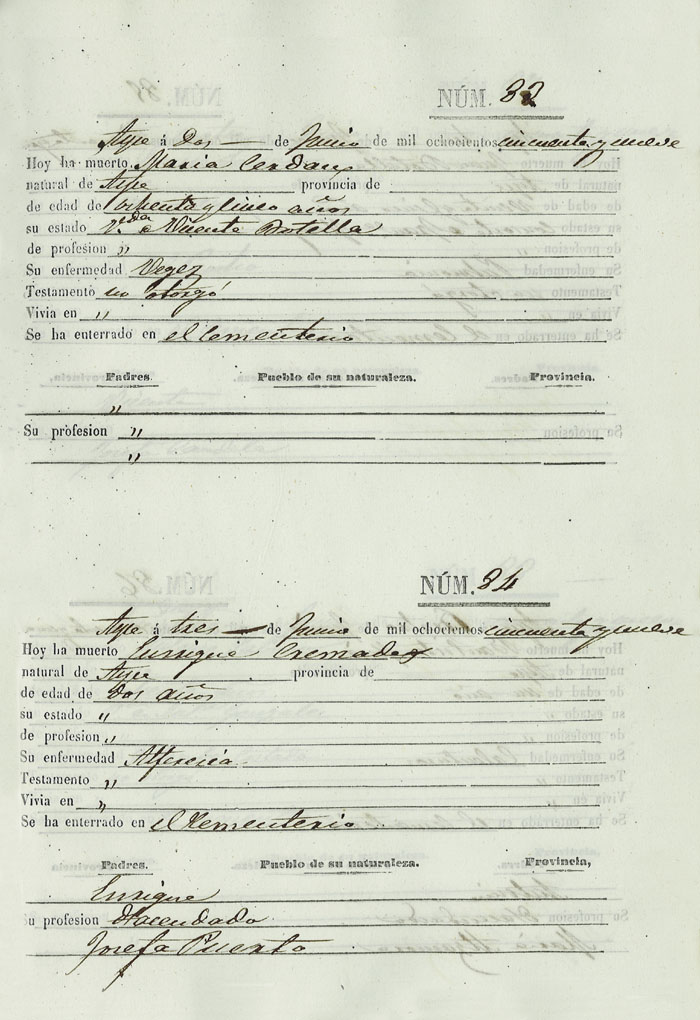 NÚM. 32
Aspe á Dos de Junio de mil ochocientos cincuenta y nueve
Hoy ha muerto Maria Cerdan
natural de Aspe provincia de
de edad de ochenta y cinco años
su estado V.da de Vicente Botella
de profesion "
Su enfermedad Vegez
Testamento no otorgó
Vivia en "
Se ha enterrado en el Cementerio
Padres. Pueblo de su naturaleza. Provincia.
"
Su profesion "
"
NÚM. 34
Aspe á tres de Junio de mil ochocientos cincuenta y nueve
Hoy ha muerto Enrrique Cremades
natural de Aspe provincia de
de edad de dos años
su estado "
de profesion "
Su enfermedad Alferecia
Testamento "
Vivia en "
Se ha enterrado en el Cementerio
Padres. Pueblo de su naturaleza. Provincia,
Enrrique
Su profesion Hacendado
Josefa Puerto